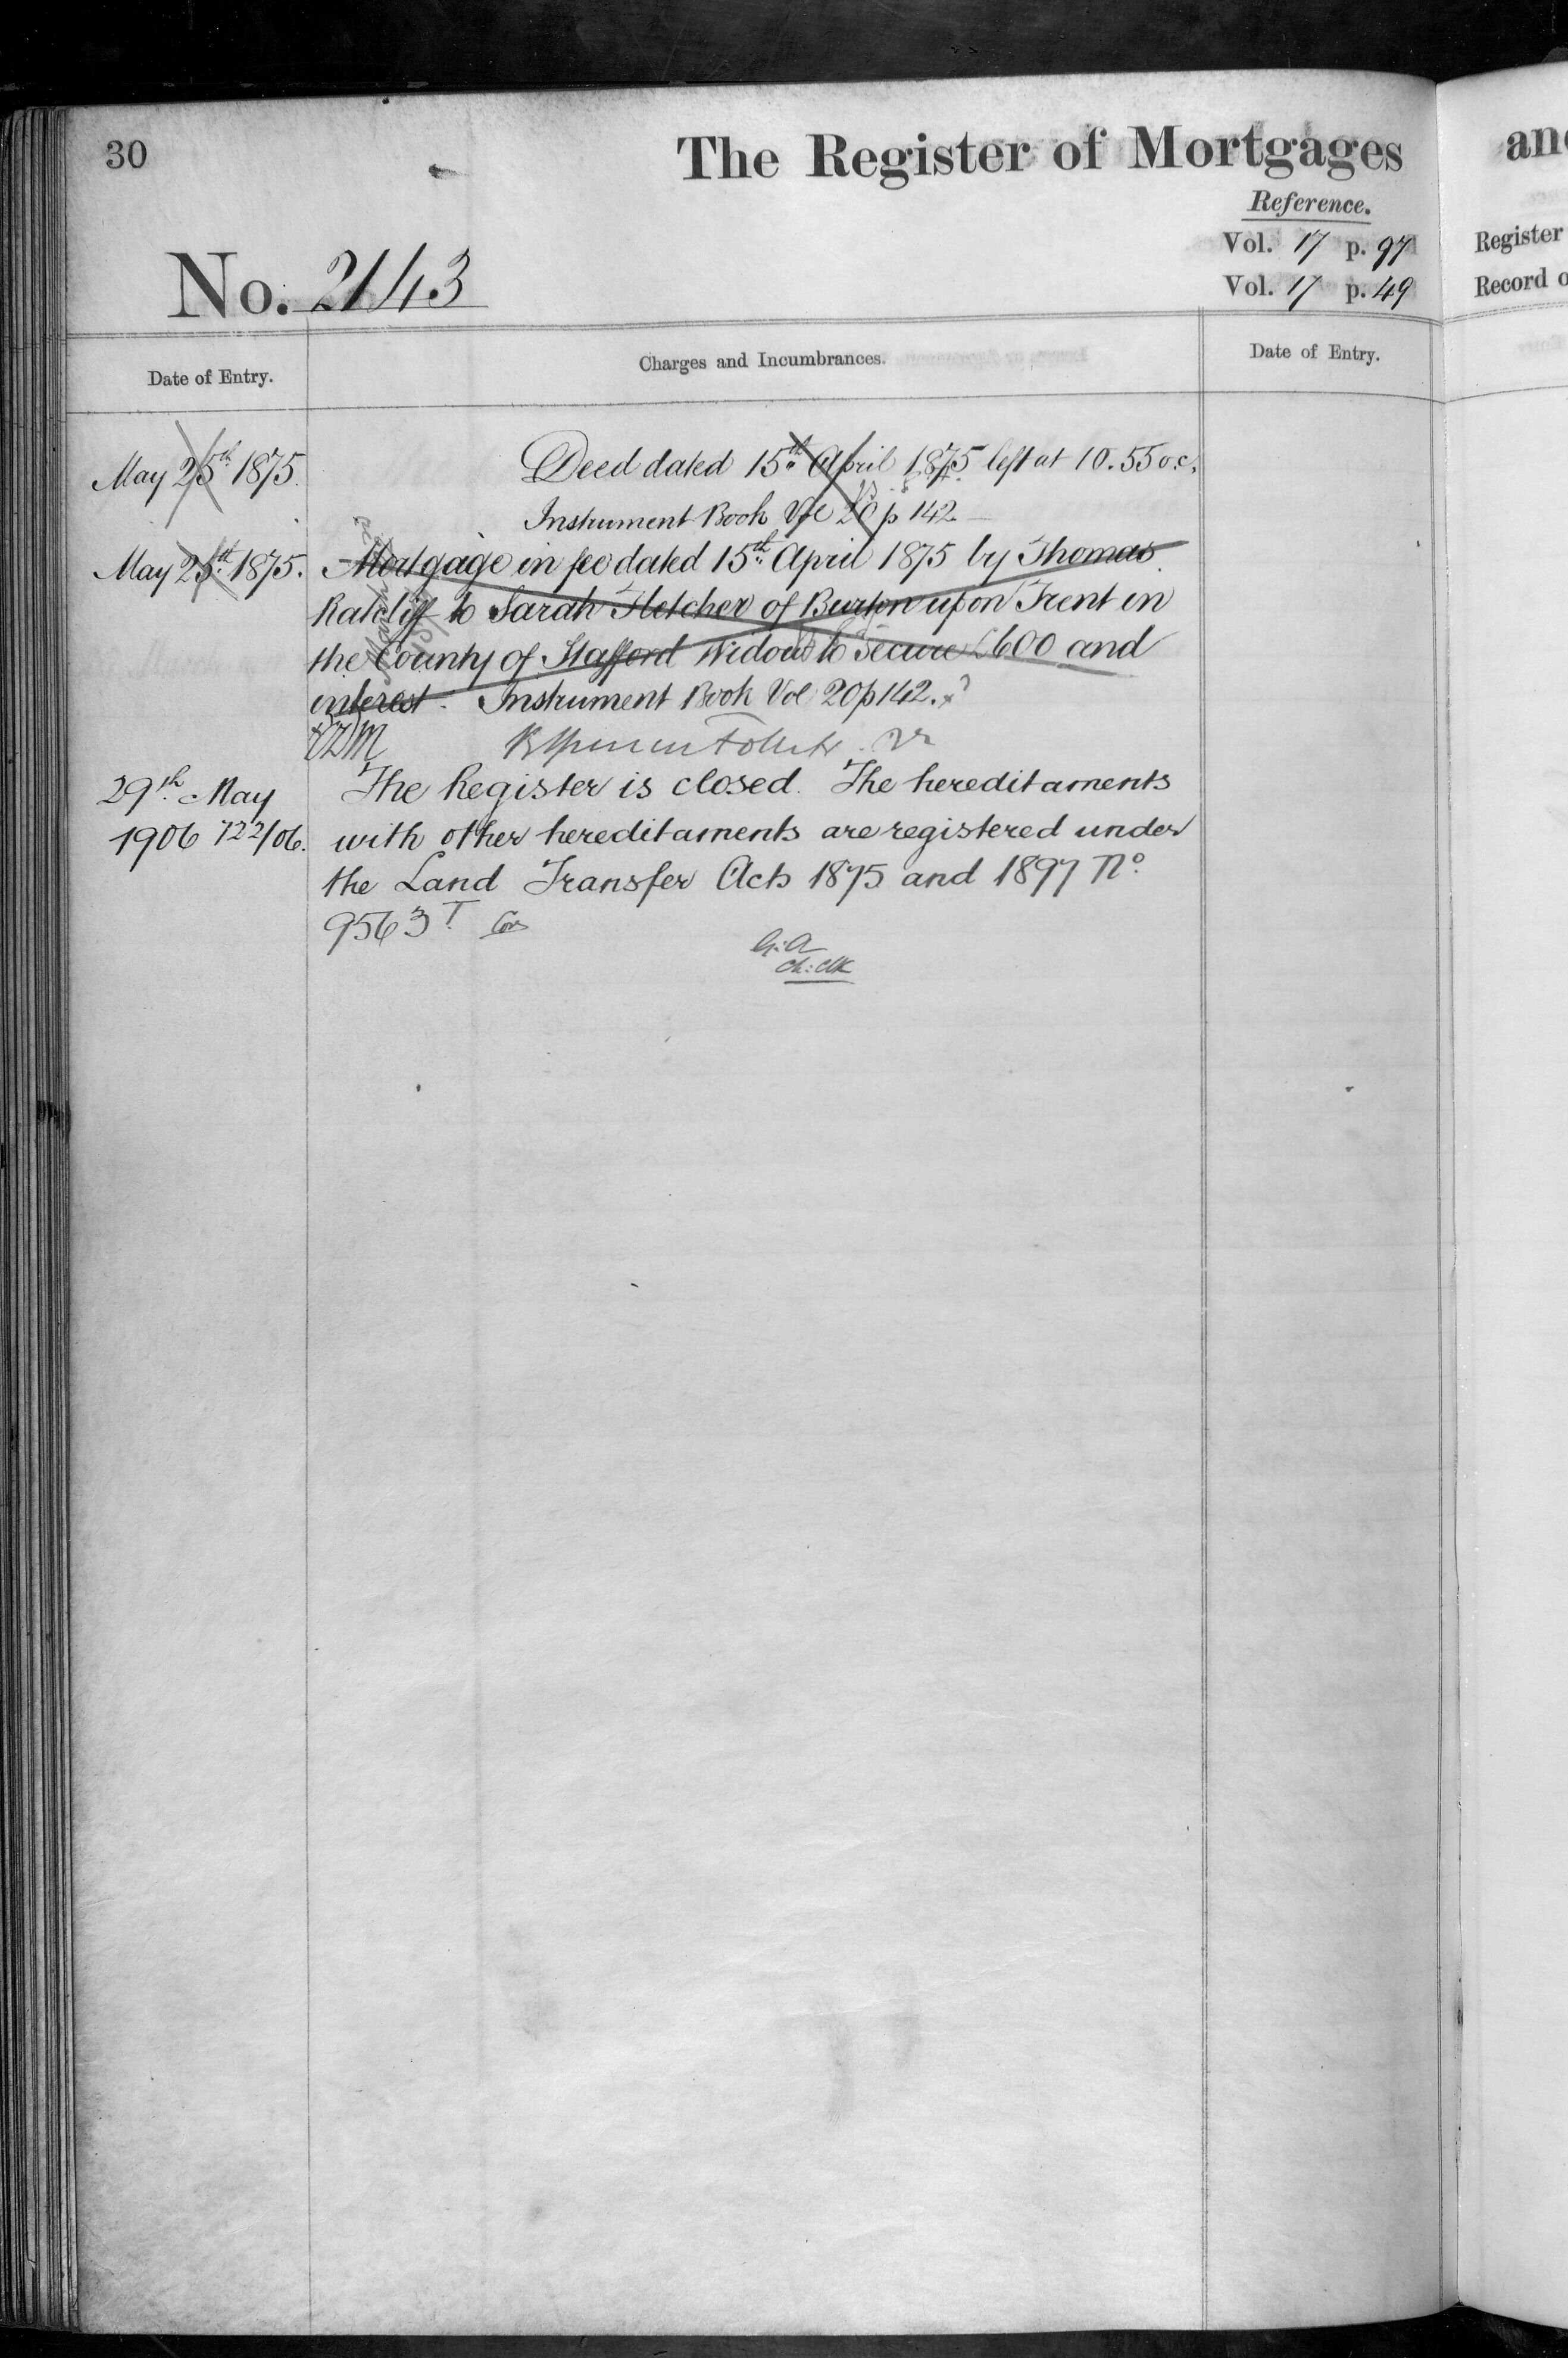 30
The Register of Mortgages
Reference.
Vol. 17 p. 97
Vol. 17 p. 49
No. 2143
Date of Entry.
Charges and Incumbrances.
Date of Entry.
May 25th 1875.
Deed dated 15th April 1875 left at 10.55 o.c.
Instrument Book Vol 20 p 142
May 25th 1875.
Mortgage in fee dated 15th April 1875 by Thomas
Ratcliff to Sarah Fletcher of Burton upon Trent in
the County of Stafford Widow to secure £600 and
interest. Instrument Book Vol 20 p 142.
29th May
1906 722/06.
The Register is closed. The hereditaments
with other hereditaments are registered under
the Land Transfer Acts 1875 and 1897 No.
9563 T
Ch: Clk
an
Register
Record o